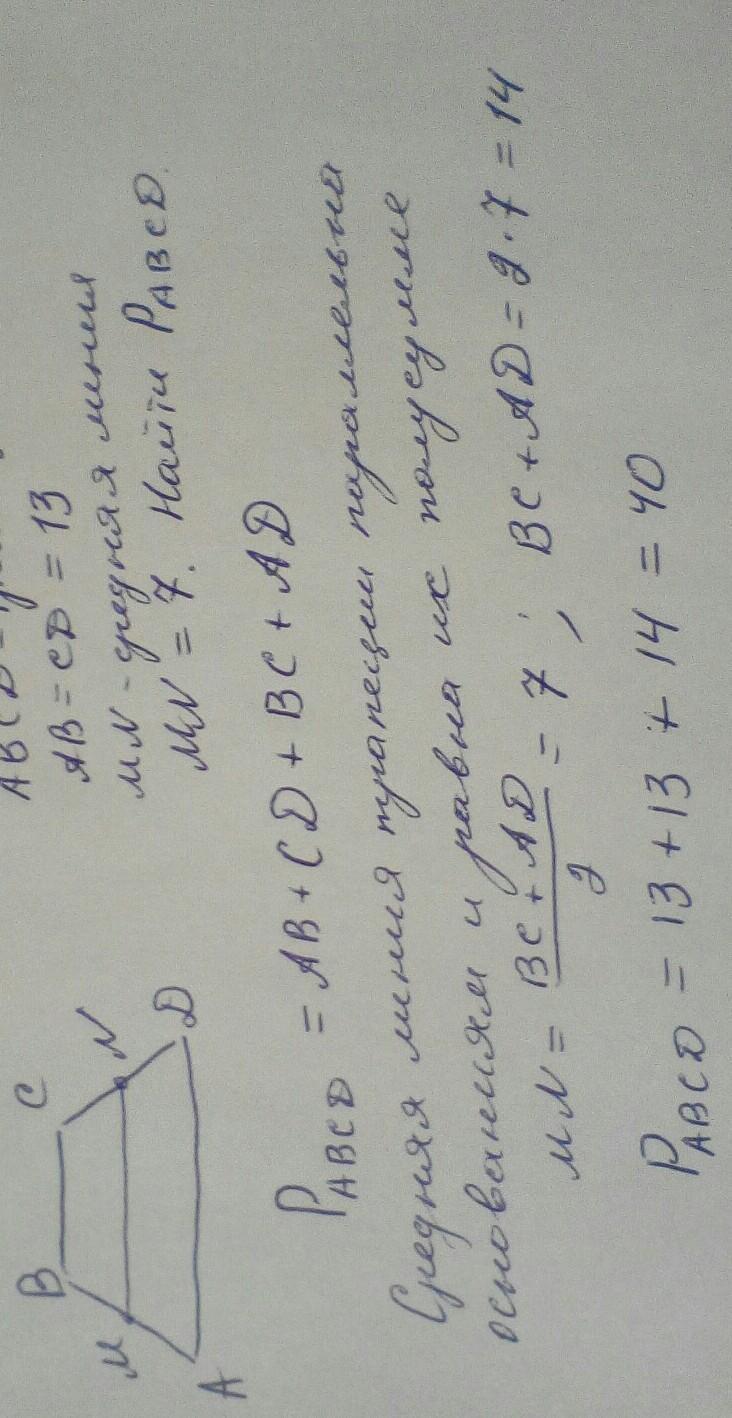 ABCD -
AB = CD = 13
MN - средняя линия
MN = 7. Найти P ABCD.
B C
M N
A D
P ABCD = AB + CD + BC + AD
Средняя линия трапеции параллельна
основаниям и равна их полусумме
MN = (BC + AD)/2 = 7 ; BC + AD = 2 · 7 = 14
P ABCD = 13 + 13 + 14 = 40